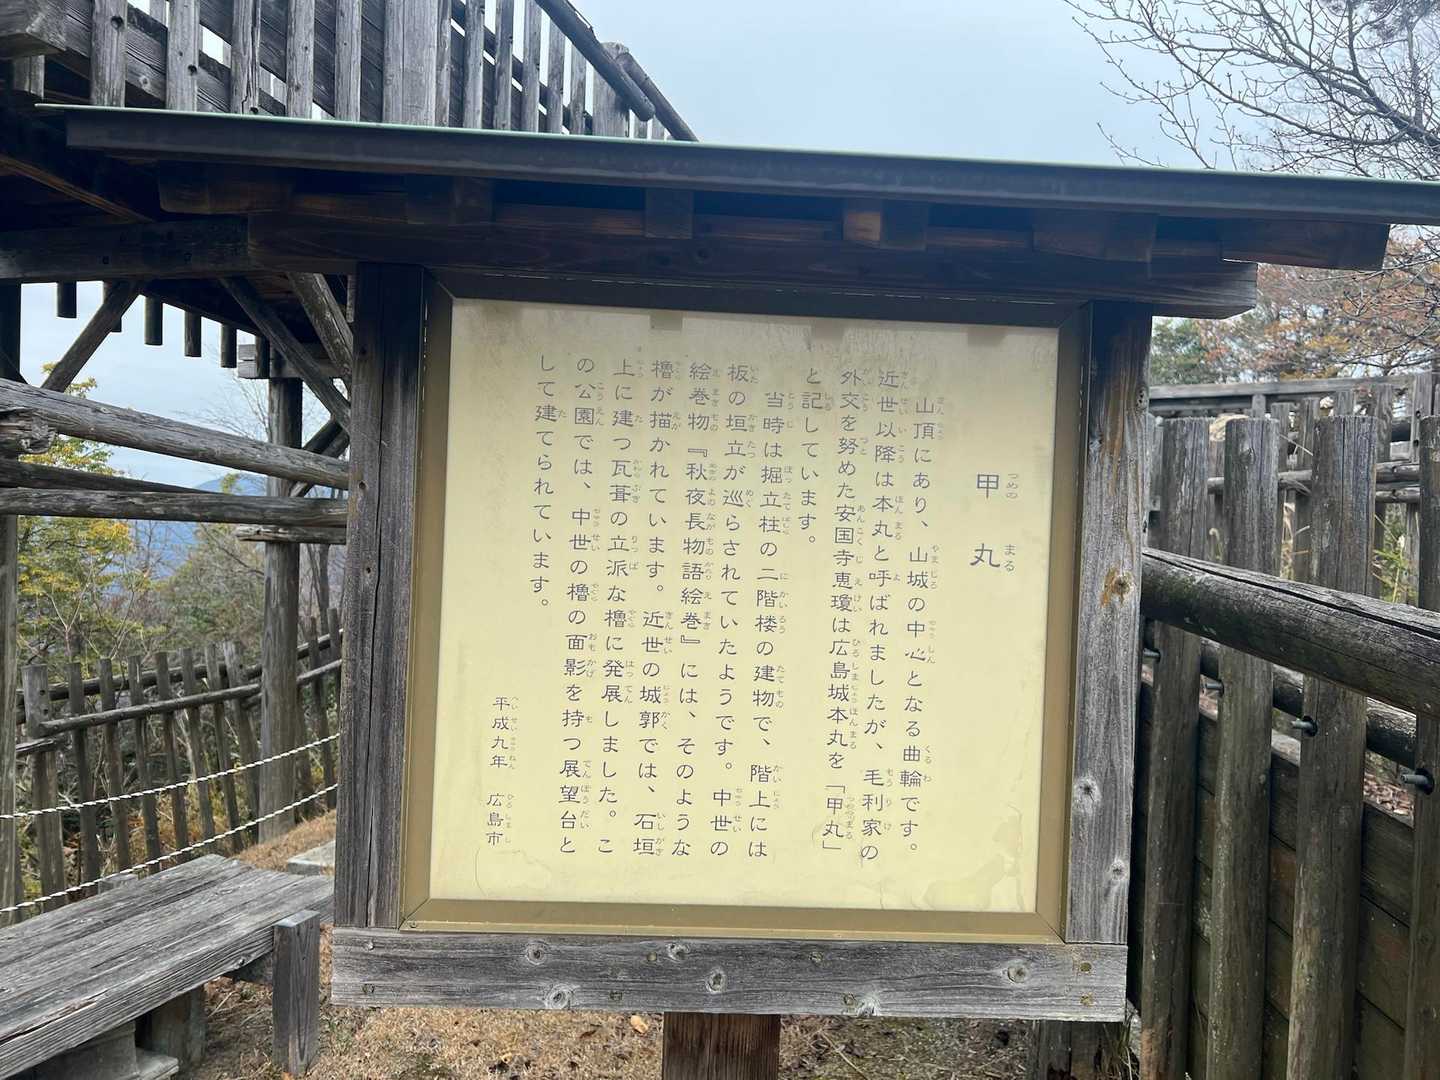 甲丸
山頂にあり、山城の中心となる曲輪です。
近世以降は本丸と呼ばれましたが、毛利家の
外交を努めた安国寺恵瓊は広島城本丸を「甲丸」
と記しています。
当時は掘立柱の二階楼の建物で、階上には
板の垣立が巡らされていたようです。中世の
絵巻物『秋夜長物語絵巻』には、そのような
櫓が描かれています。近世の城郭では、石垣
上に建つ瓦葺の立派な櫓に発展しました。こ
の公園では、中世の櫓の面影を持つ展望台と
して建てられています。
平成九年 広島市